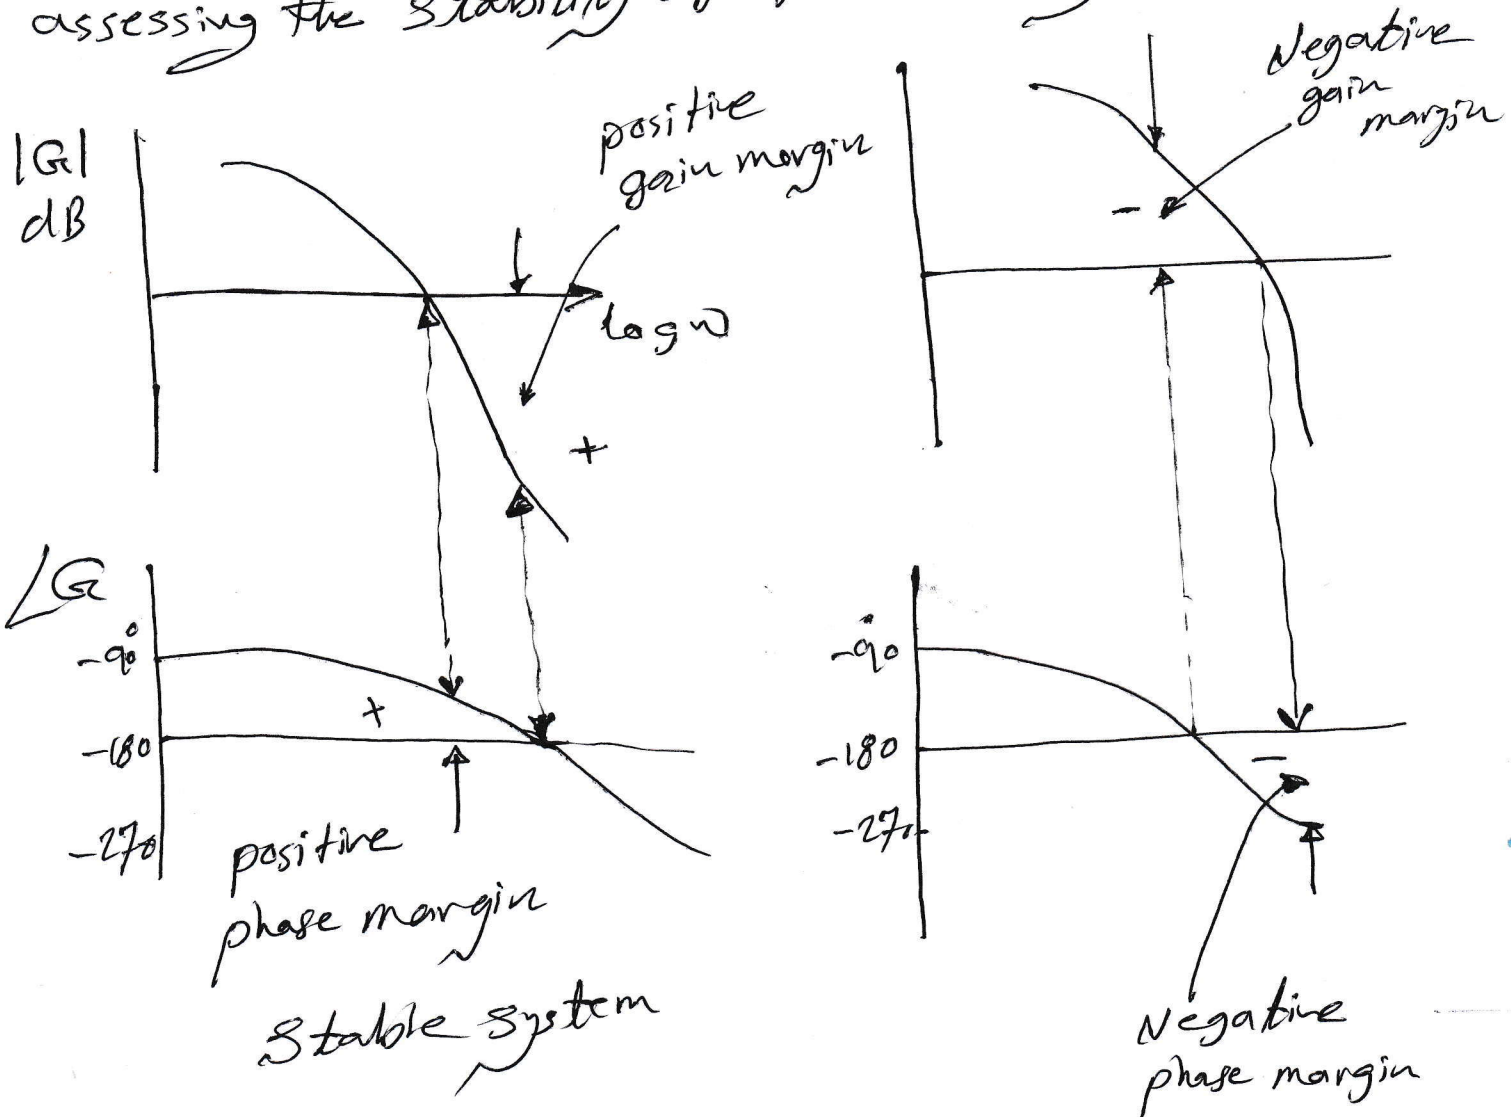 assessing the stability
|G|
dB
positive
gain margin
+
log w
∠G
-90°
+
-180
-270
positive
phase margin
stable system
Negative
gain
margin
-
-90°
-180
-
-270
Negative
phase margin